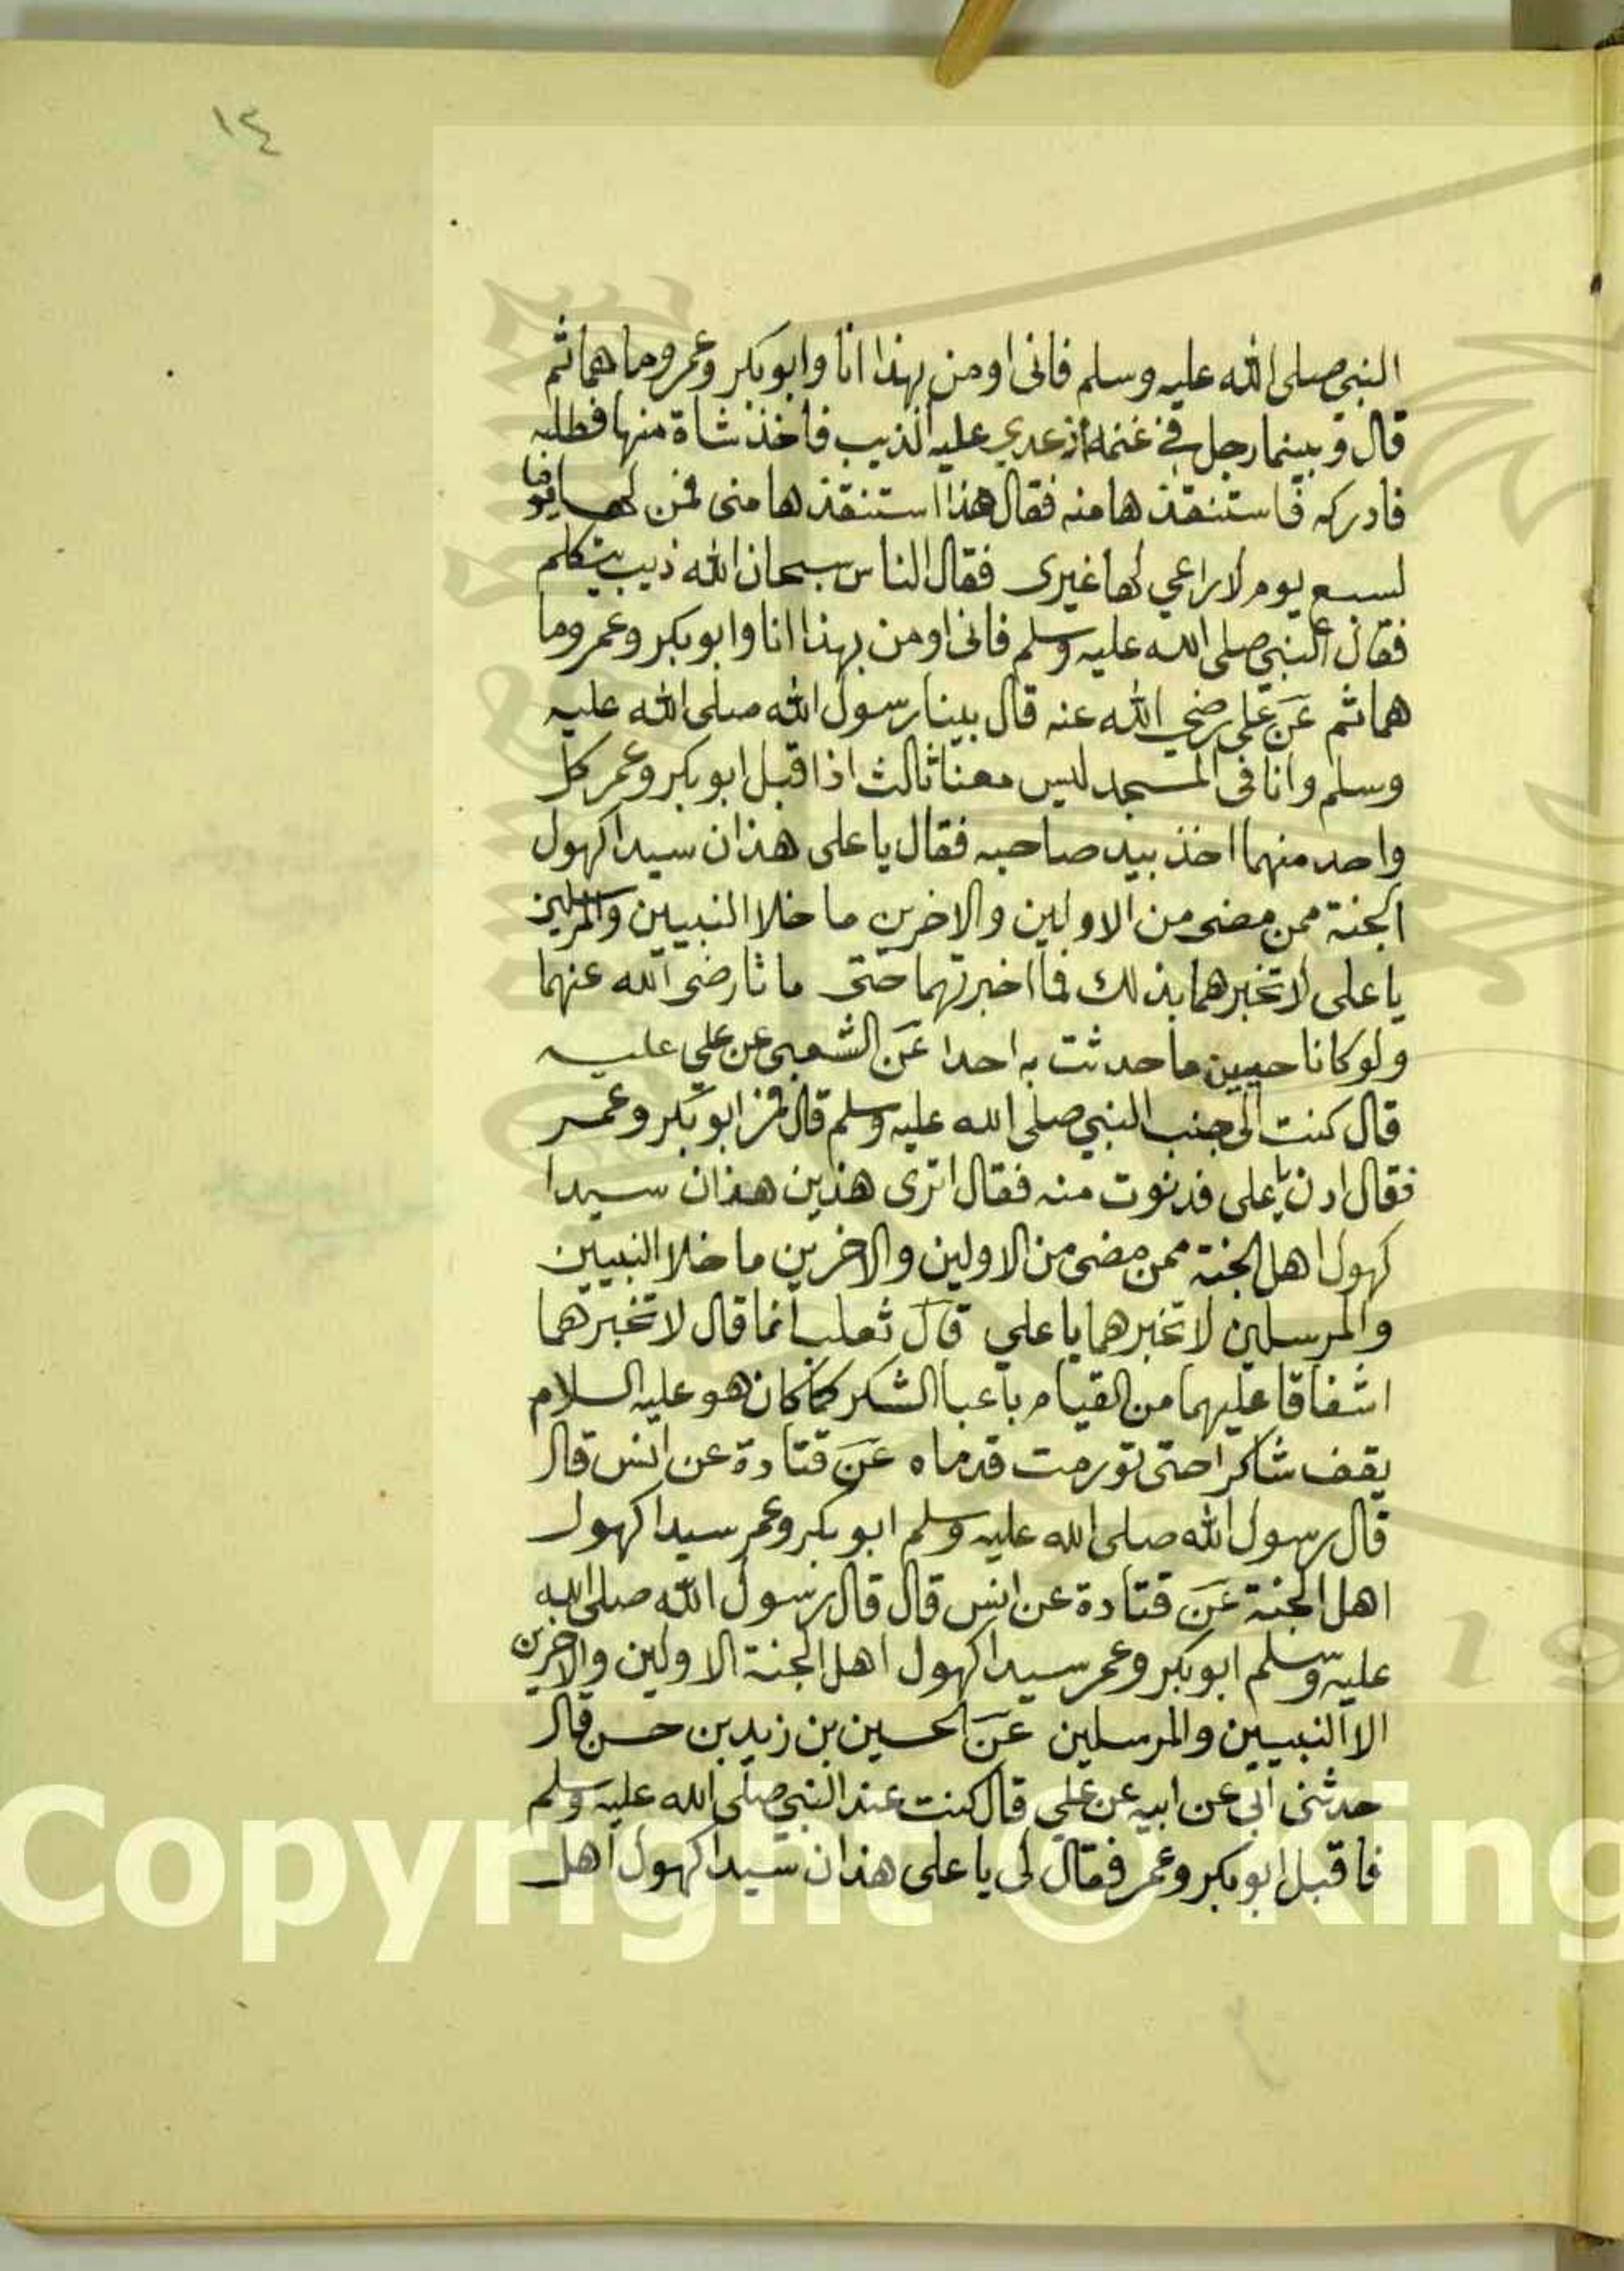 ١٤
النبي صلى الله عليه وسلم فانى اومن بهذا انا وابو بكر وعمر وما هما ثم
قال و بينما رجل في غنمه اذ عدي عليه الذيب فاخذ شاة منها فطلبه
فادركه فاستنقذها منه فقال هذا استنقذها منى فمن لها يوم
لسبع يوم لا راعي لها غيرى فقال الناس سبحان الله ذيب يتكلم
فقال النبي صلى الله عليه وسلم فانى اومن بهذا انا وابو بكر وعمر وما
هما ثم عن على رضي الله عنه قال بينا رسول الله صلى الله عليه
وسلم وانا فى المسجد ليس معنا ثالث اذا قبل ابو بكر وعمر كل
واحد منهما اخذ بيد صاحبه فقال يا على هذان سيدا كهول
الجنة ممن مضى من الاولين والاخرين ما خلا النبيين والمرسلين
يا على لا تخبرهما بذلك فما اخبرتهما حتى ماتا رضى الله عنهما
ولو كانا حيين ما حدثت به احدا عن الشعبى عن علي عليه
قال كنت الى جنب النبي صلى الله عليه وسلم قال فمر ابو بكر وعمر
فقال ادن يا على فدنوت منه فقال اترى هذين هذان سيدا
كهول اهل الجنة ممن مضى من الاولين والاخرين ما خلا النبيين
والمرسلين لا تخبرهما يا علي قال ثعلب انما قال لا تخبرهما
اشفاقا عليهما من القيام باعبا الشكر كما كان هو عليه السلام
يقف شاكرا حتى تورمت قدماه عن قتادة عن انس قال
قال رسول الله صلى الله عليه وسلم ابو بكر وعمر سيدا كهول
اهل الجنة عن قتادة عن انس قال قال رسول الله صلى الله
عليه وسلم ابو بكر وعمر سيدا كهول اهل الجنة الاولين والاخرين
الا النبيين والمرسلين عن الحسين بن زيد بن حسن قال
حدثنى ابي عن ابيه عن علي قال كنت عند النبي صلى الله عليه وسلم
فاقبل ابو بكر وعمر فقال لى يا على هذان سيدا كهول اهل
Copyright © King